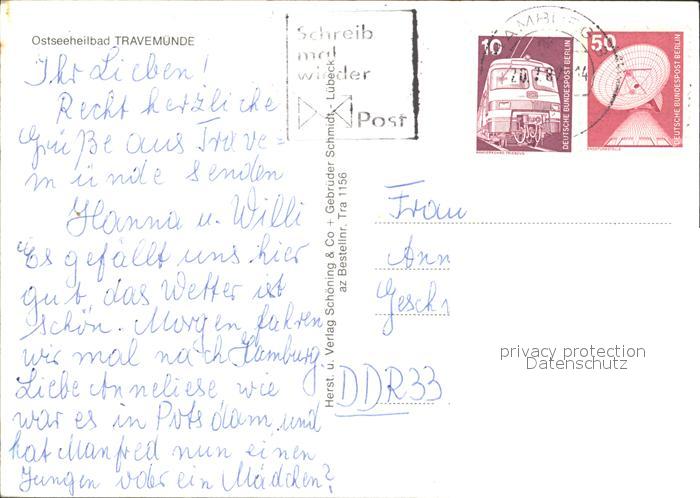 Ostseeheilbad TRAVEMÜNDE
Ihr Lieben!
Recht herzliche
Grüße aus Trave=
münde senden
Hanna u. Willi
Es gefällt uns hier
gut, das Wetter ist
schön. Morgen fahren
wir mal nach Hamburg.
Liebe Anneliese wie
war es in Potsdam und
hat Manfred nun einen
Jungen oder ein Mädchen?
Herst. u. Verlag Schöning & Co + Gebrüder Schmidt, Lübeck
az Bestellnr. Tra 1156
Schreib
mal
wieder
Post
HAMBURG
10
DEUTSCHE BUNDESPOST BERLIN
50
DEUTSCHE BUNDESPOST BERLIN
Frau
Ann
Gesch
DDR 33
privacy protection
Datenschutz